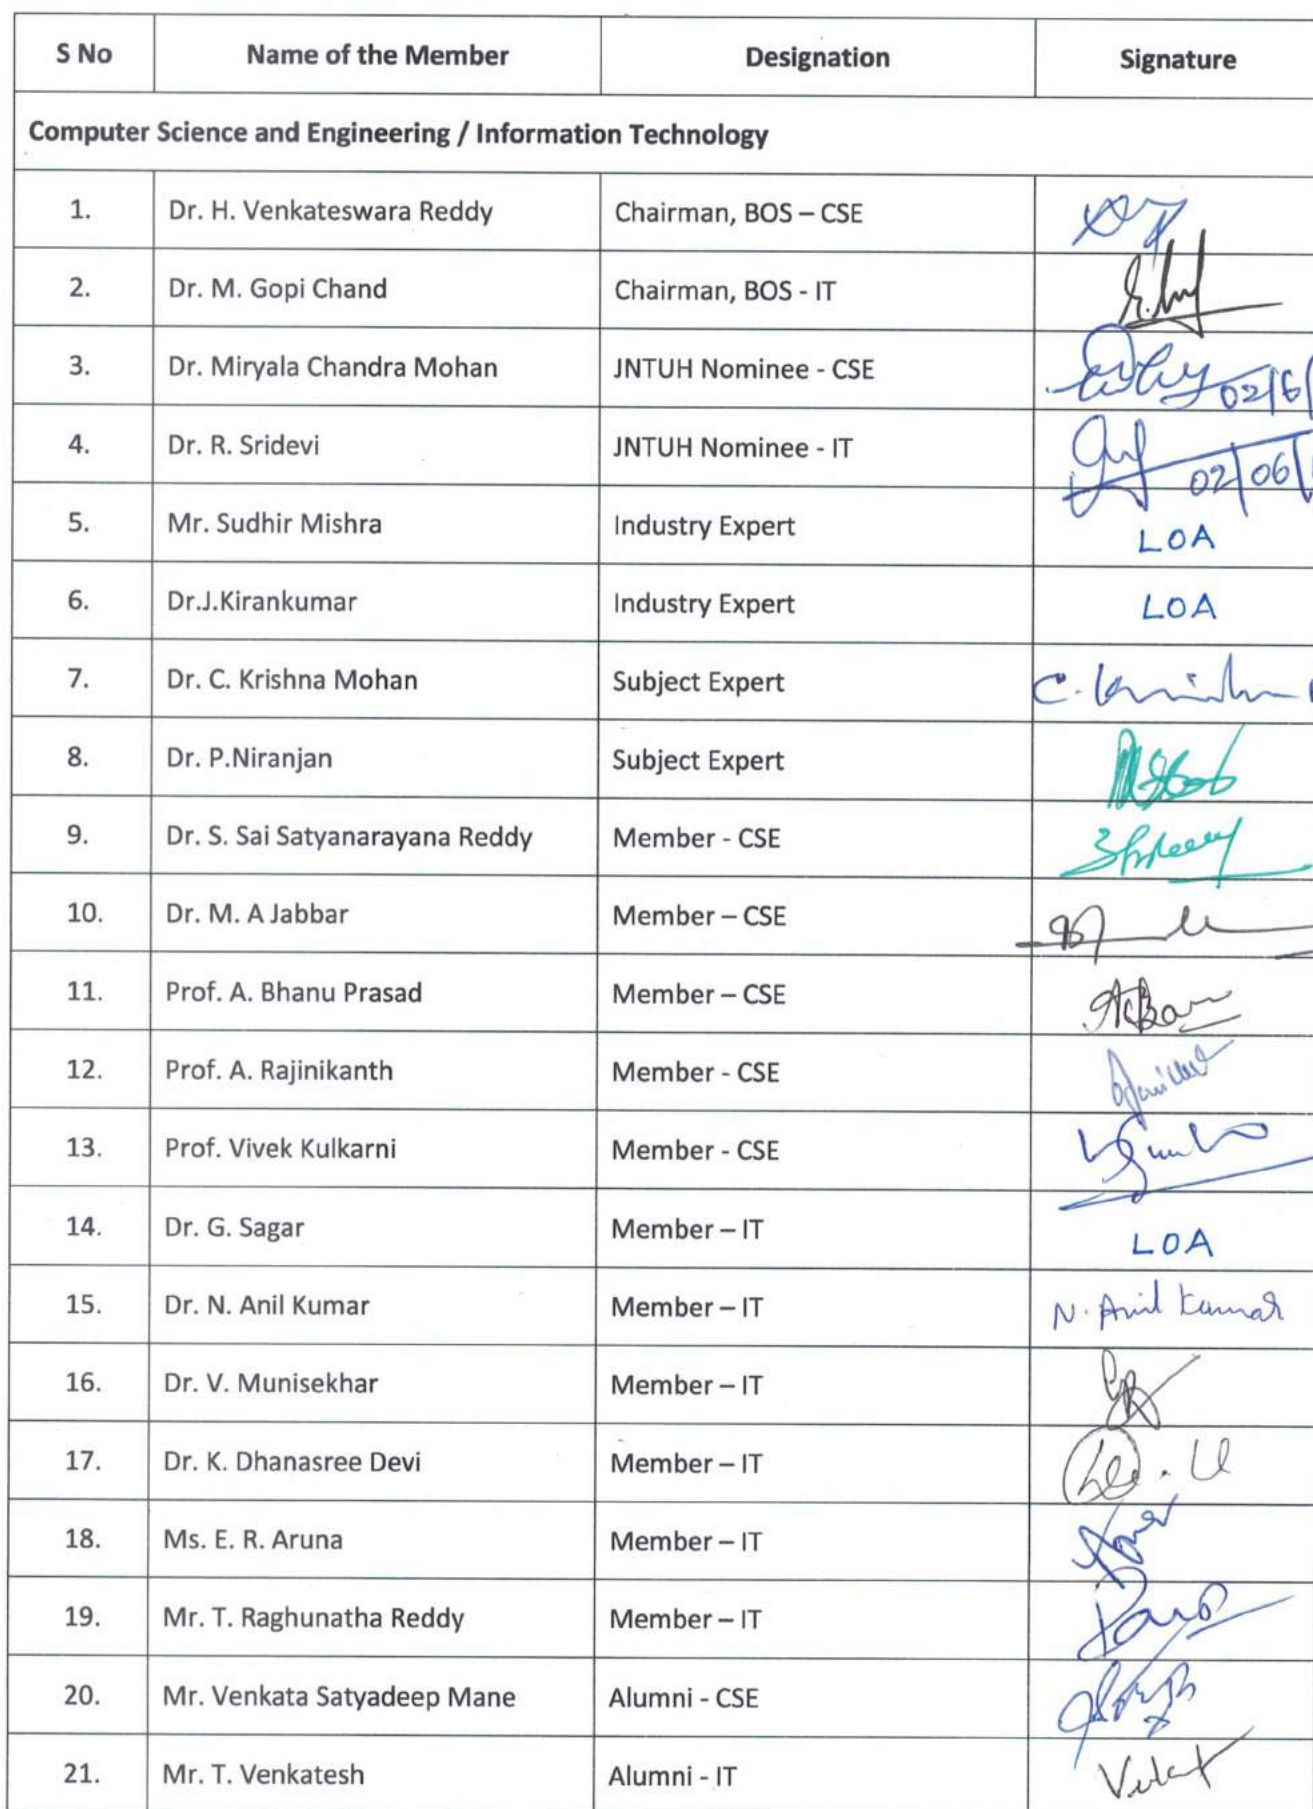 S No Name of the Member Designation Signature
Computer Science and Engineering / Information Technology
1. Dr. H. Venkateswara Reddy Chairman, BOS – CSE
2. Dr. M. Gopi Chand Chairman, BOS - IT
3. Dr. Miryala Chandra Mohan JNTUH Nominee - CSE 02/6/
4. Dr. R. Sridevi JNTUH Nominee - IT 02/06/
5. Mr. Sudhir Mishra Industry Expert LOA
6. Dr.J.Kirankumar Industry Expert LOA
7. Dr. C. Krishna Mohan Subject Expert
8. Dr. P.Niranjan Subject Expert
9. Dr. S. Sai Satyanarayana Reddy Member - CSE
10. Dr. M. A Jabbar Member – CSE
11. Prof. A. Bhanu Prasad Member – CSE
12. Prof. A. Rajinikanth Member - CSE
13. Prof. Vivek Kulkarni Member - CSE
14. Dr. G. Sagar Member – IT LOA
15. Dr. N. Anil Kumar Member – IT N. Anil Kumar
16. Dr. V. Munisekhar Member – IT
17. Dr. K. Dhanasree Devi Member – IT
18. Ms. E. R. Aruna Member – IT
19. Mr. T. Raghunatha Reddy Member – IT
20. Mr. Venkata Satyadeep Mane Alumni - CSE
21. Mr. T. Venkatesh Alumni - IT